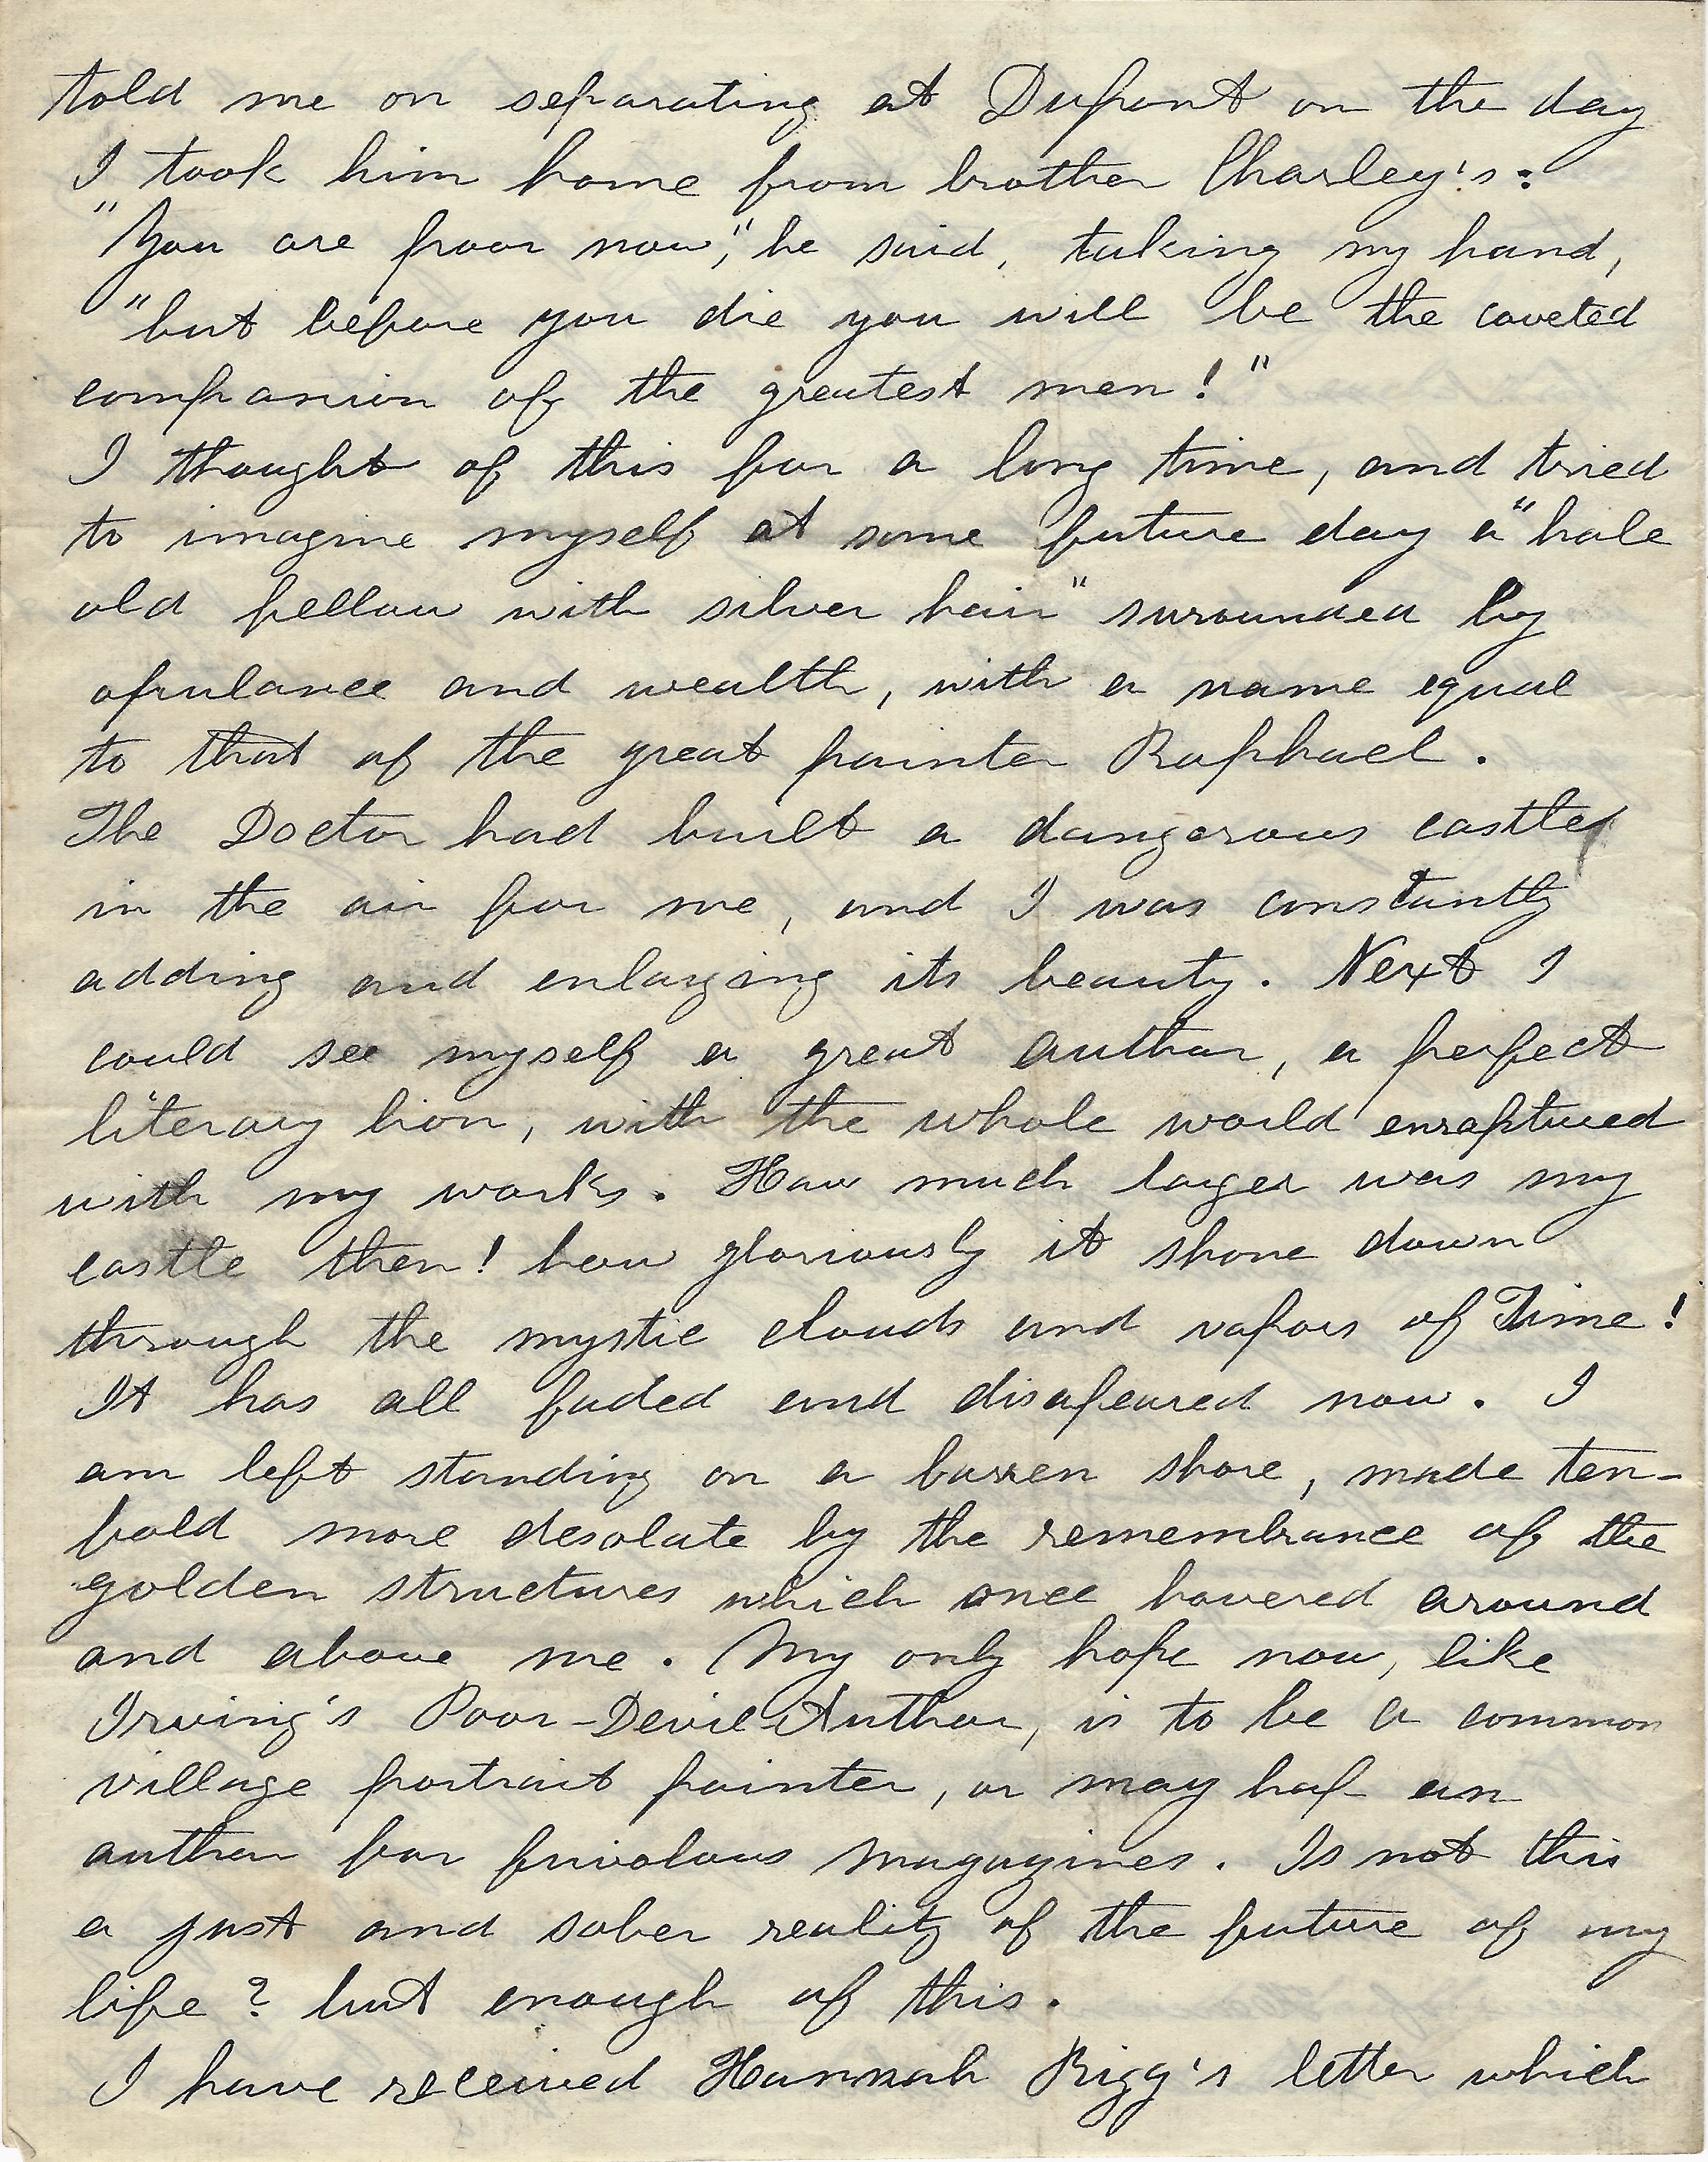 told me on separating at Dupont on the day
I took him home from brother Charley's:
"You are poor now," he said, taking my hand,
"but before you die you will be the coveted
companion of the greatest men!"
I thought of this for a long time, and tried
to imagine myself at some future day a "hale
old fellow with silver hair" surounded by
opulance and wealth, with a name equal
to that of the great painter Raphael.
The Doctor had built a dangerous castle
in the air for me, and I was constantly
adding and enlarging its beauty. Next I
could see myself a great author, a perfect
literary lion, with the whole world enraptured
with my works. How much larger was my
castle then! how gloriously it shone down
through the mystic clouds and vapors of Time!
It has all faded and disapeared now. I
am left standing on a barren shore, made ten-
fold more desolate by the remembrance of the
golden structures which once hovered around
and above me. My only hope now, like
Irving's Poor-Devil-Author, is to be a common
village portrait painter, or may hap an
author for frivolous magazines. Is not this
a just and sober reality of the future of my
life? but enough of this.
I have received Hannah Rigg's letter which